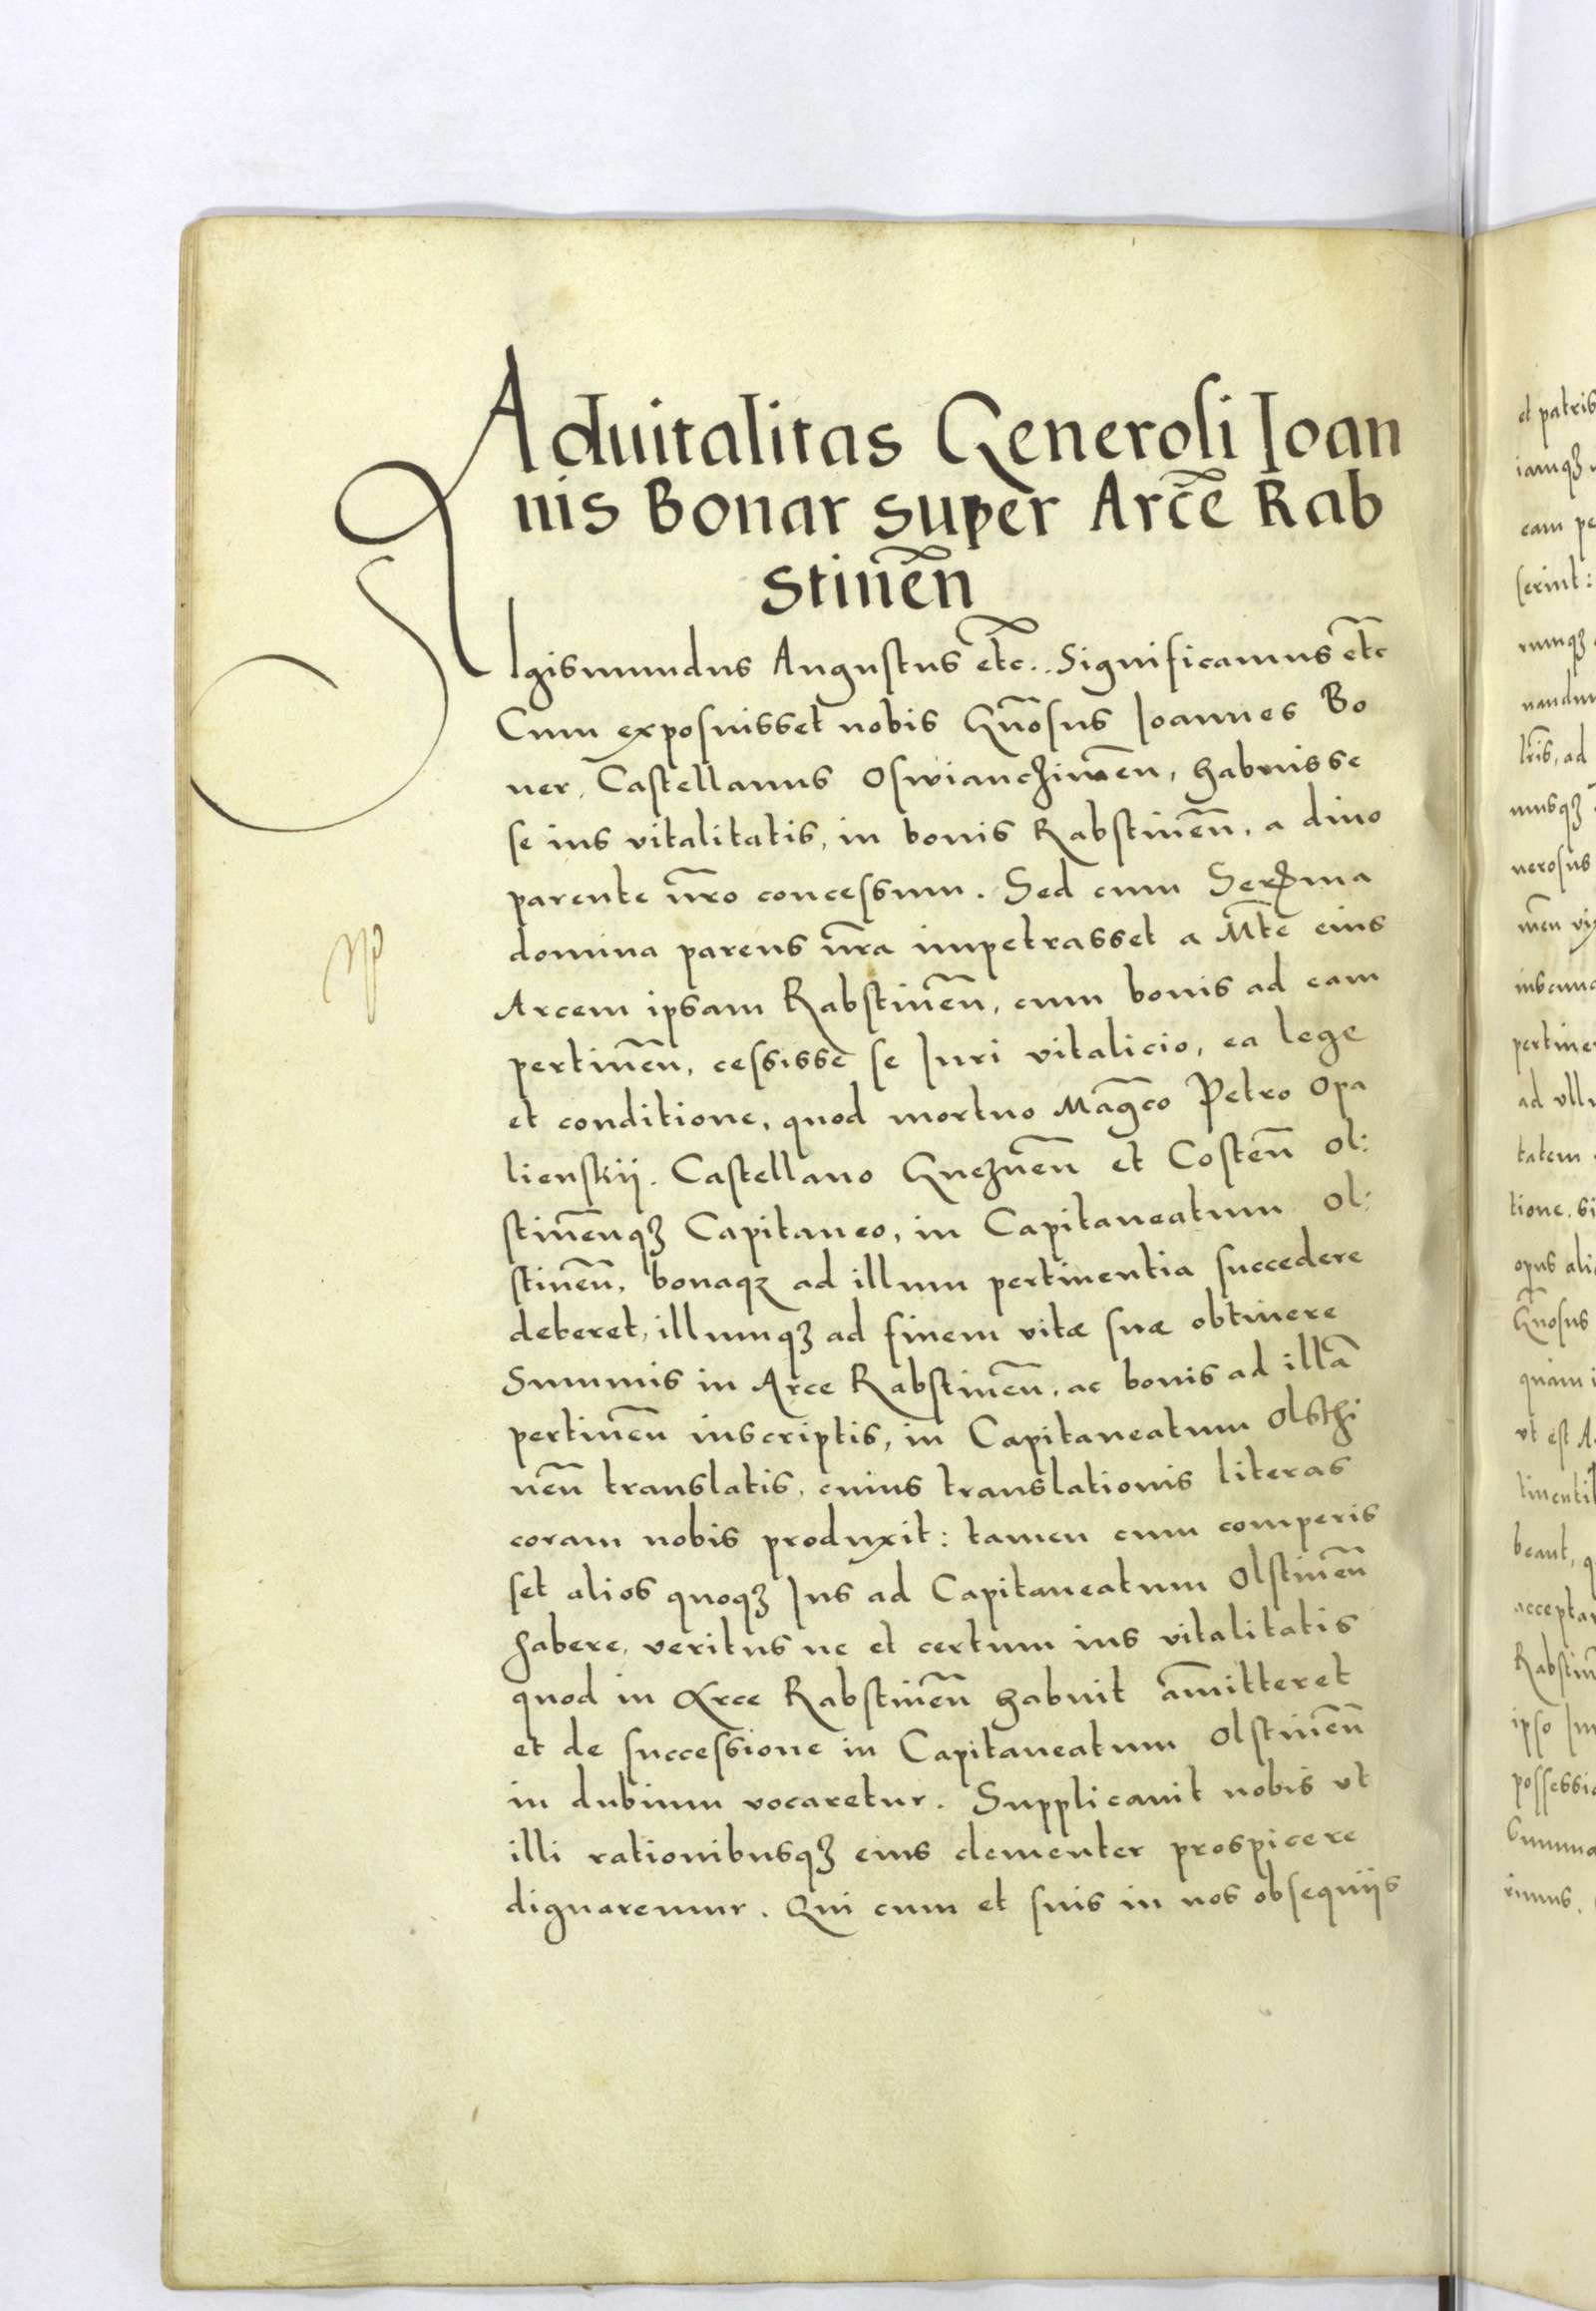 Aduitalitas Generosi Ioan
nis Bonar super Arcē Rab
stineñ
SIgismundus Augustus etc̃. Significamus etc̃
Cum exposuisset nobis Gñosus Ioannes Bo
ner, Castellanus Oswianczimeñ, habuisse
se ius vitalitatis, in bonis Rabstineñ, a diuo
parente ñro concessum. Sed cum Serma
domina parens ñra impetrasset a Mte eius
Arcem ipsam Rabstineñ, cum bonis ad eam
pertineñ, cessisse se Iuri vitalicio, ea lege
et conditione, quod mortuo Magco Petro Opa
lienskij. Castellano Gnezneñ et Costeñ Ol:
stineñqꝫ Capitaneo, in Capitaneatum Ol:
stineñ, bonaqꝫ ad illum pertinentia succedere
deberet, illumqꝫ ad finem vitæ suæ obtinere
Summis in Arce Rabstineñ, ac bonis ad illā
pertineñ inscriptis, in Capitaneatum Olschi
neñ translatis, cuius translationis literas
coram nobis produxit: tamen cum comperis
set alios quoqꝫ Ius ad Capitaneatum Olstineñ
habere, veritus ne et certum ius vitalitatis
quod in Arce Rabstineñ habuit am̄itteret
et de successione in Capitaneatum Olstineñ
in dubium vocaretur. Supplicauit nobis vt
illi rationibusqꝫ eius clementer prospicere
dignaremur. Qui cum et suis in nos obsequijs
et patris
iamqꝫ
cam pe
serint:
rumqꝫ
nandu
lr̃is, ad
musqꝫ
nerosus
meñ vi
pertine
ad vllu
tatem
tione. si
opus ali
Gñosus
quam i
vt est A
tinenti
beant, q
acceptar
Rabstin
ipso Iu
possessio
Summa
rimus.